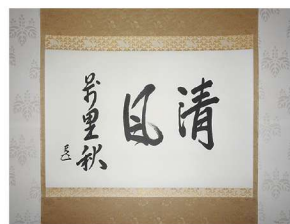 清風
萬里秋